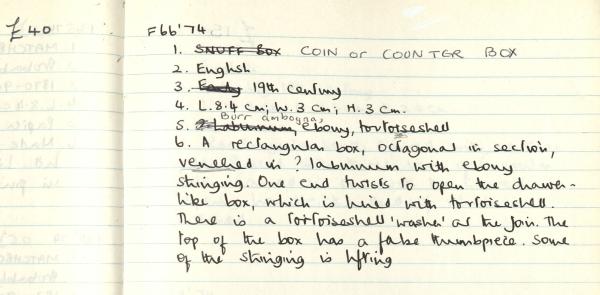 £40
F66'74
1. SNUFF BOX COIN or COUNTER BOX
2. English
3. Early 19th century
4. L.8.4 cm; W. 3 cm; H. 3 cm.
Burr amboyna,
5. ? Laburnum, ebony, tortoiseshell
6. A rectangular box, octagonal in section,
veneered in ? laburnum with ebony
stringing. One end twists to open the drawer-
like box, which is lined with tortoiseshell.
There is a tortoiseshell 'washer' at the join. The
top of the box has a false thumbpiece. Some
of the stringing is lifting